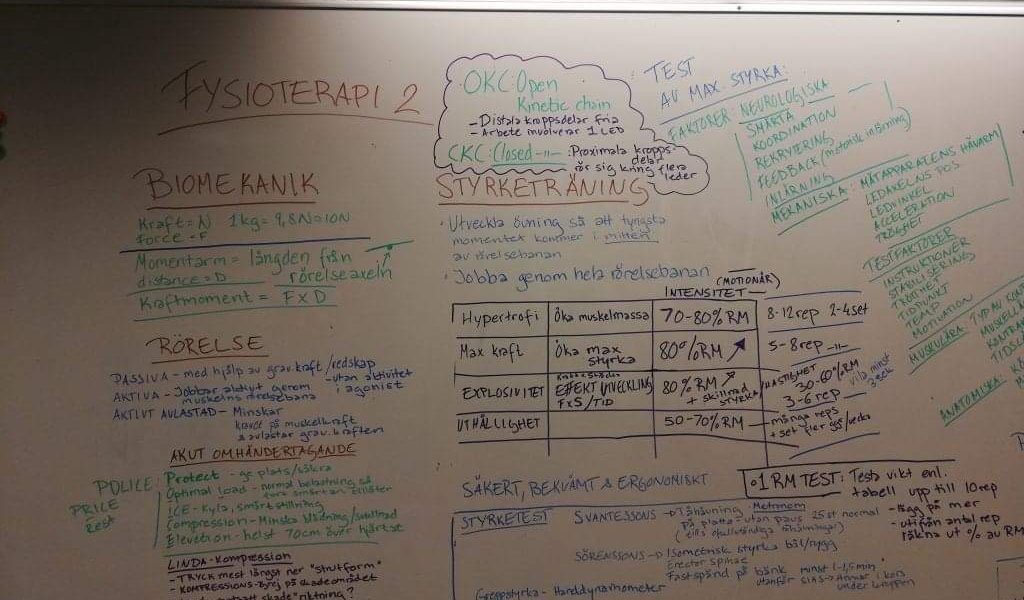 FYSIOTERAPI 2
BIOMEKANIK
Kraft = N 1kg = 9,8N = 10N
force = F
Momentarm = längden från
distance = D rörelseaxeln
Kraftmoment = F x D
RÖRELSE
PASSIVA - med hjälp av grav.kraft/redskap
- utan aktivitet
AKTIVA - Jobbar aktivt genom i agonist
muskelns rörelsebana
AKTIVT AVLASTAD - Minskar
kravet på muskelkraft
& avlastar grav.kraften
AKUT OMHÄNDERTAGANDE
POLICE: Protect - ge plats/säkra
Optimal load - normal belastning så
PRICE ICE - Kyla, smärtstillning
Rest Compression - Minska blödning/svullnad
Elevation - helst 70cm över hjärtat
LINDA - Kompression
- TRYCK mest längst ner "strutform"
- KOMPRESSIONS- på skadeområdet
riktning?
OKC: Open
Kinetic chain
- Distala kroppsdelar fria
- Arbete involverar 1 LED
CKC: Closed -"- : Proximala kropps-
delar
rör sig kring flera
leder
STYRKETRÄNING
· Utveckla övning så att tyngsta
momentet kommer i mitten
av rörelsebanan
· Jobba genom hela rörelsebanan
(MOTIONÄR)
INTENSITET
Hypertrofi Öka muskelmassa 70-80% RM 8-12 rep 2-4 set
Max kraft Öka max styrka 80% RM ↗ 5-8 rep -"-
EXPLOSIVITET EFFEKTUTVECKLING F x S / TID 80% RM ↗ + skillnad STYRKA/HASTIGHET 30-60% RM 3-6 rep vila minst 3 sek
UTHÅLLIGHET 50-70% RM - många reps + set fler ggr/vecka
SÄKERT, BEKVÄMT & ERGONOMISKT
· 1 RM TEST: Testa vikt enl.
tabell upp till 10 rep
- lägg på mer
- utifrån antal rep
räkna ut % av RM
STYRKETEST SVANTESSONS → Tåhävning Metronom
På platta - utan paus 25 st normal
SÖRENSSONS → Isometrisk styrka bål/rygg
Erector Spinae
Fastspänd på bänk minst 1-1,5 min
utanför SIAS → Armar i kors
Greppstyrka - Handdynamometer
TEST
AV MAX STYRKA:
FAKTORER: NEUROLOGISKA
SMÄRTA
KOORDINATION
REKRYTERING
FEEDBACK (motorisk inlärning)
INLÄRNING
MEKANISKA: MÄTAPPARATENS HÄVARM
LEDAXELNS POS
LEDVINKEL
ACCELERATION
TRÖGHET
TESTFAKTORER
INSTRUKTIONER
STABILISERING
TRÖTTHET
TIDPUNKT
TEMPO
MOTIVATION
MUSKULÄRA: TYP AV
MUSKELL
KONTRA
TIDSL
ANATOMISKA: